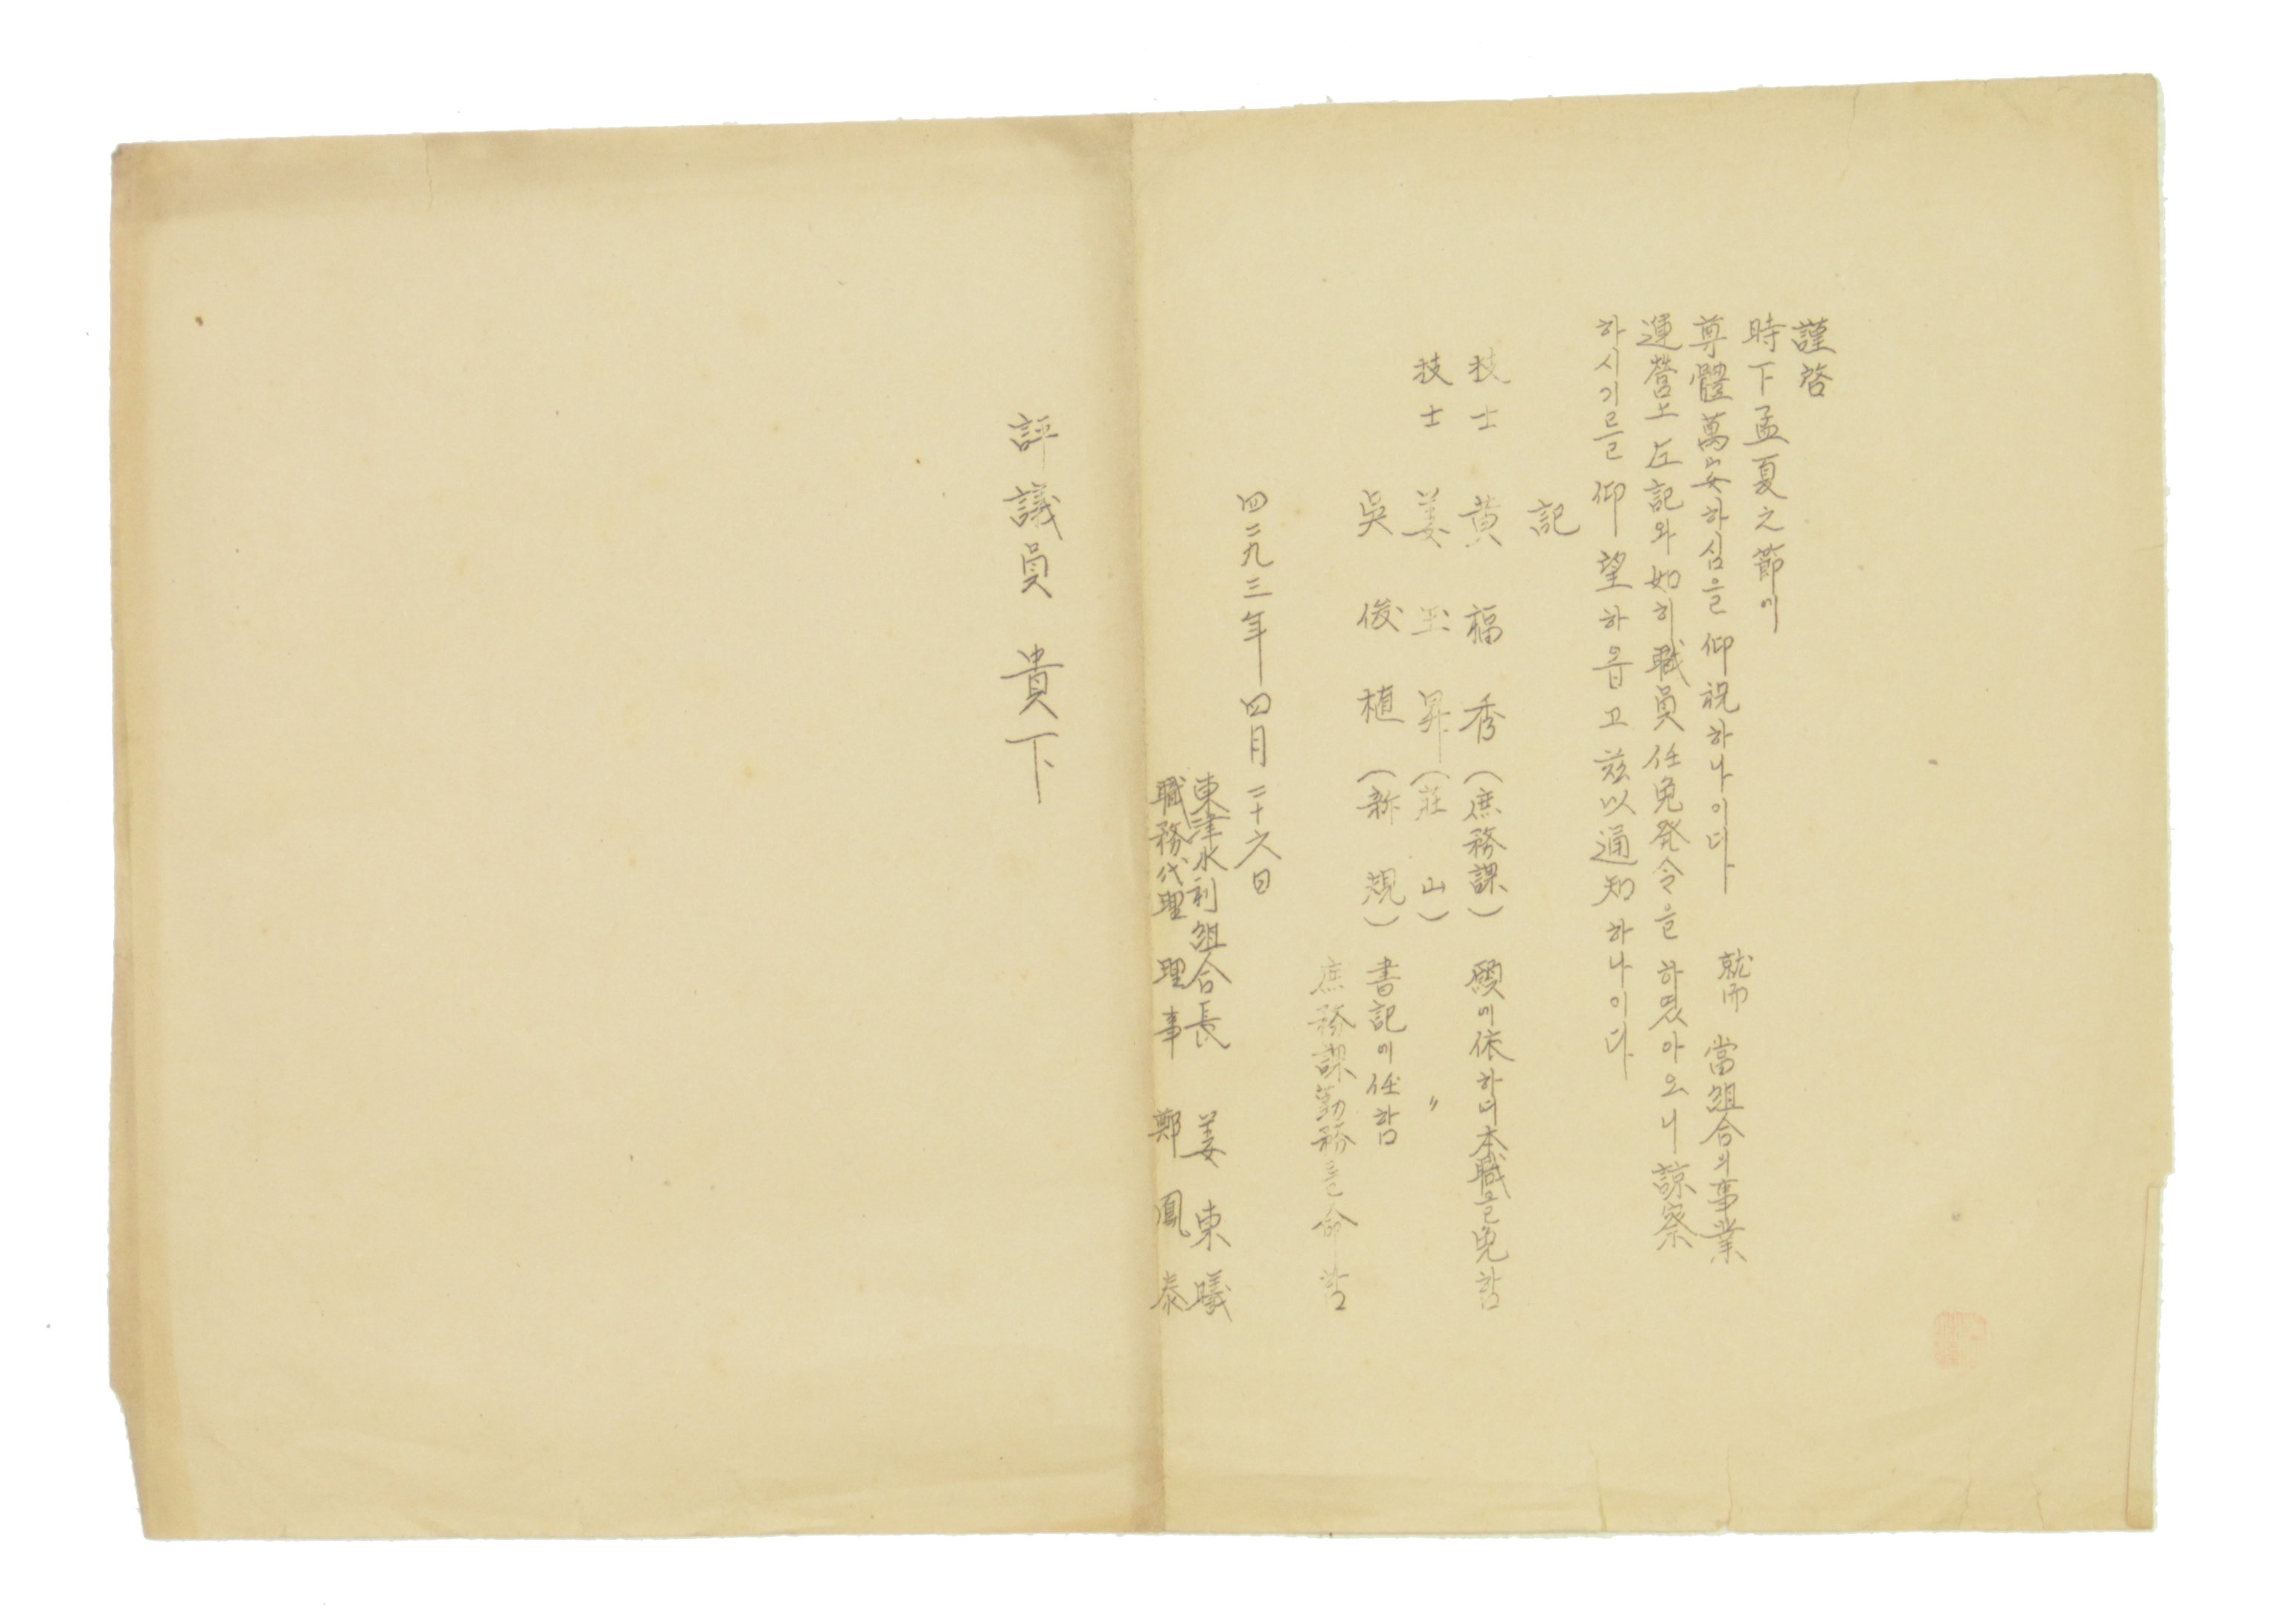 謹啓
時下孟夏之節에
尊體萬安하심을 仰祝하나이다 就而 當組合의事業
運營上 左記와 如히 職員任免発令을 하였아오니 諒察
하시기를 仰望하옵고 玆以通知하나이다
記
技士 黃福秀(庶務課) 願에依하여本職을免함
技士 姜玉昇(莊山) 〃
吳俊植(新規) 書記에任함
庶務課勤務를命함
四二九三年四月二十六日
東津水利組合長 姜東曦
職務代理 理事 鄭鳳泰
評議員 貴下